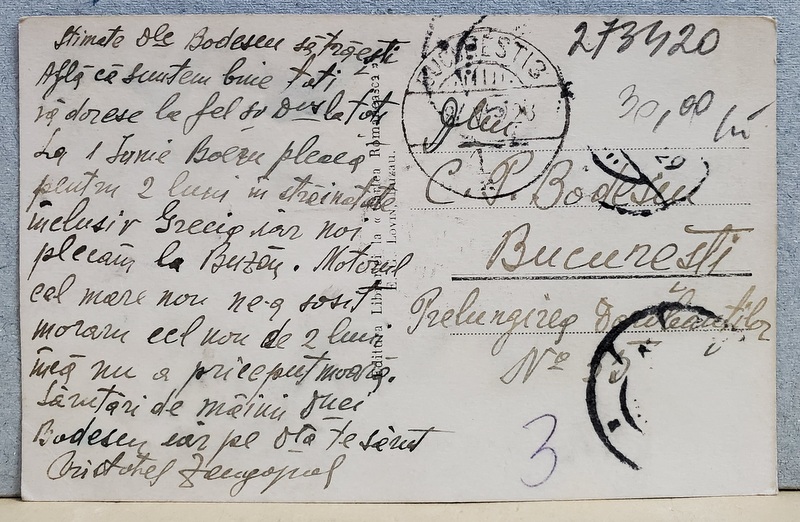 Stimate Dle Bodescu să trăești
Află că suntem bine toți
vă doresc la fel sv Dvs la toți
La 1 Iunie Boeru pleacă
pentru 2 luni în străinatate
inclusiv Grecia iar noi
plecăm la Buzău. Motorul
cel mare nou ne-a sosit
moraru cel nou de 2 luni
încă nu a priceput moara.
Sărutări de mâini Dnei
Bodescu iar pe Dta te sărut
Cristotel
Editura Librăriei la Românească
Lovin Buzău.
BUCUREȘTI 3
273420
30,00 lei
C. P. Bodescu
București
Prelungirea
No
3